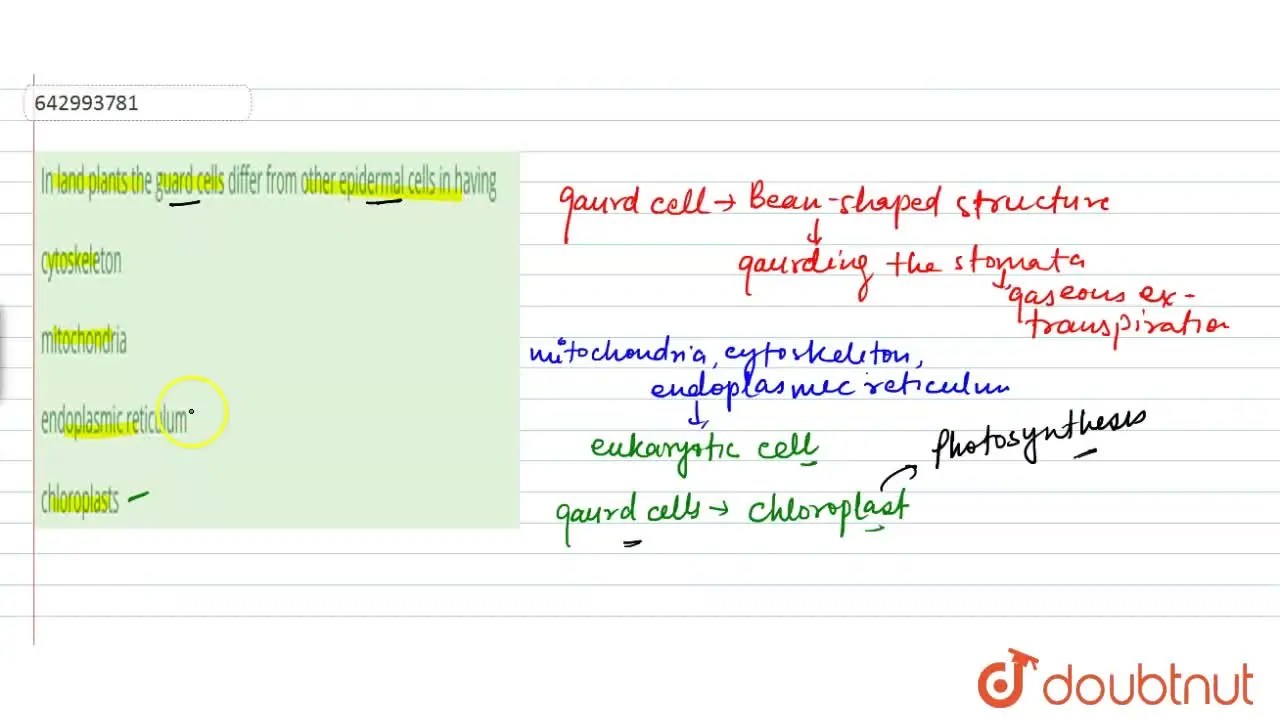 642993781
In land plants the guard cells differ from other epidermal cells in having
cytoskeleton
mitochondria
endoplasmic reticulum
chloroplasts
gaurd cell → Bean-shaped structure
↓
gaurding the stomata
↓
gaseous ex-
transpiration
mitochondria, cytoskeleton,
endoplasmec reticulum
↓
eukaryotic cell
Photosynthesis
gaurd cells → chloroplast
doubtnut